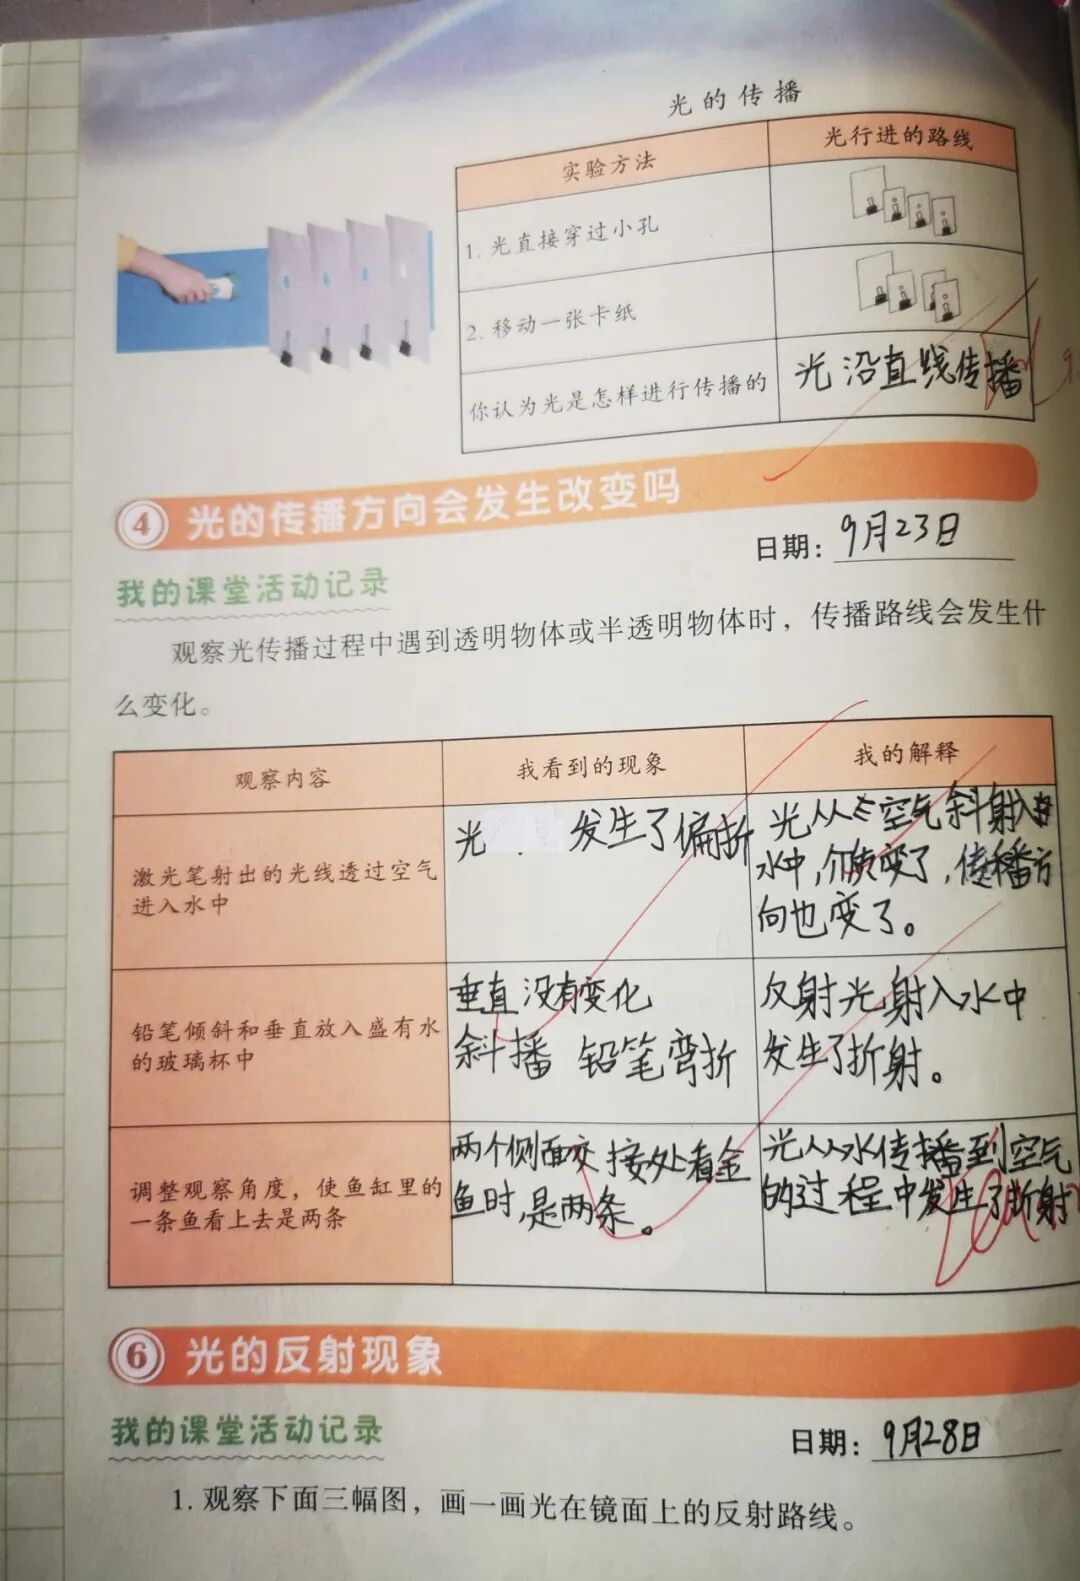 光的传播
实验方法
光行进的路线
1. 光直接穿过小孔
2. 移动一张卡纸
你认为光是怎样进行传播的
光沿直线传播
4 光的传播方向会发生改变吗
日期：9月23日
我的课堂活动记录
观察光传播过程中遇到透明物体或半透明物体时，传播路线会发生什
么变化。
观察内容
我看到的现象
我的解释
激光笔射出的光线透过空气
进入水中
光 发生了偏折
光从空气斜射入
水中，介质变了，传播方
向也变了。
铅笔倾斜和垂直放入盛有水
的玻璃杯中
垂直没有变化
斜播 铅笔弯折
反射光射入水中
发生了折射。
调整观察角度，使鱼缸里的
一条鱼看上去是两条
两个侧面交接处看金
鱼时，是两条。
光从水传播到空气
的过程中发生了折射
6 光的反射现象
我的课堂活动记录
日期：9月28日
1. 观察下面三幅图，画一画光在镜面上的反射路线。